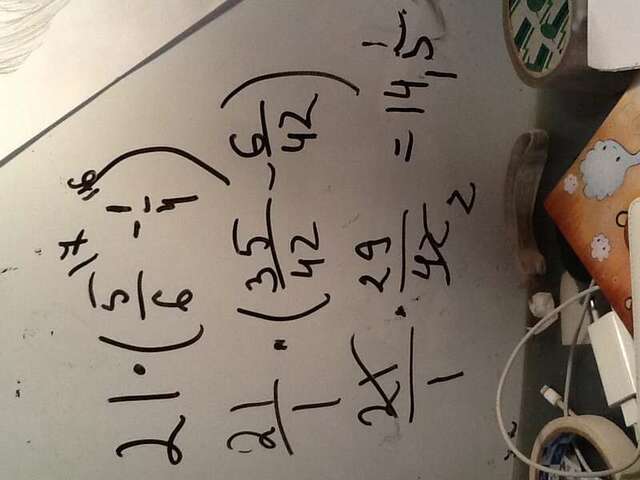 21 · (5/6 \7 - 1/7 \6)
21/1 · (35/42 - 6/42)
21/1 · 29/42 2 = 14,5